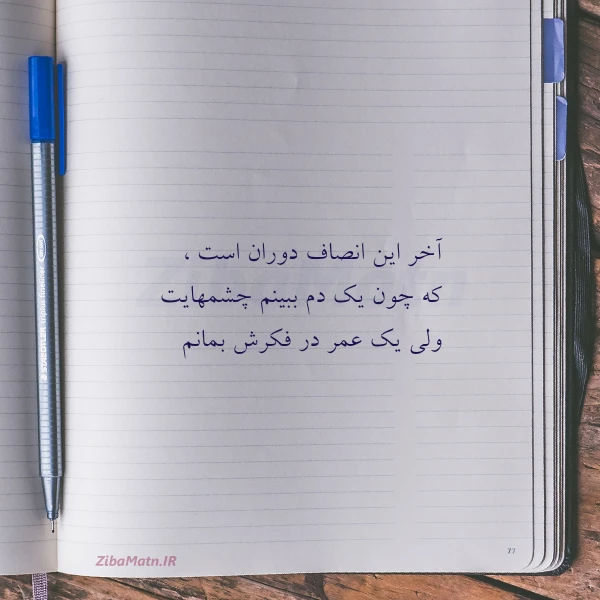 آخر این انصاف دوران است ،
که چون یک دم ببینم چشمهایت
ولی یک عمر در فکرش بمانم
77
ZibaMatn.IR